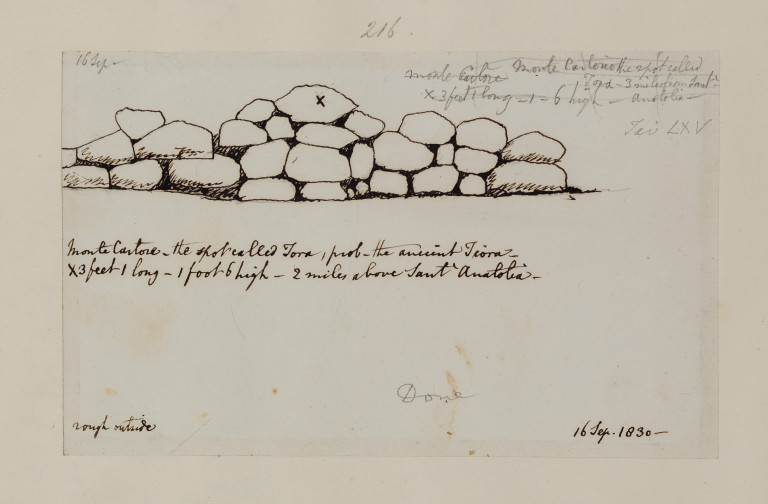 216.
16 Sep-
monte Cartore Monte Cartore the spot called
Tora - 3 miles from Sant^a
x 3 feet 1 long - 1 - 6 high - Anatolia -
LXV
x
Monte Cartore - the spot called Tora, prob - the ancient Tiora -
x 3 feet 1 long - 1 foot 6 high - 2 miles above Sant^a Anatolia -
Done
rough outside
16 Sep. 1830 -